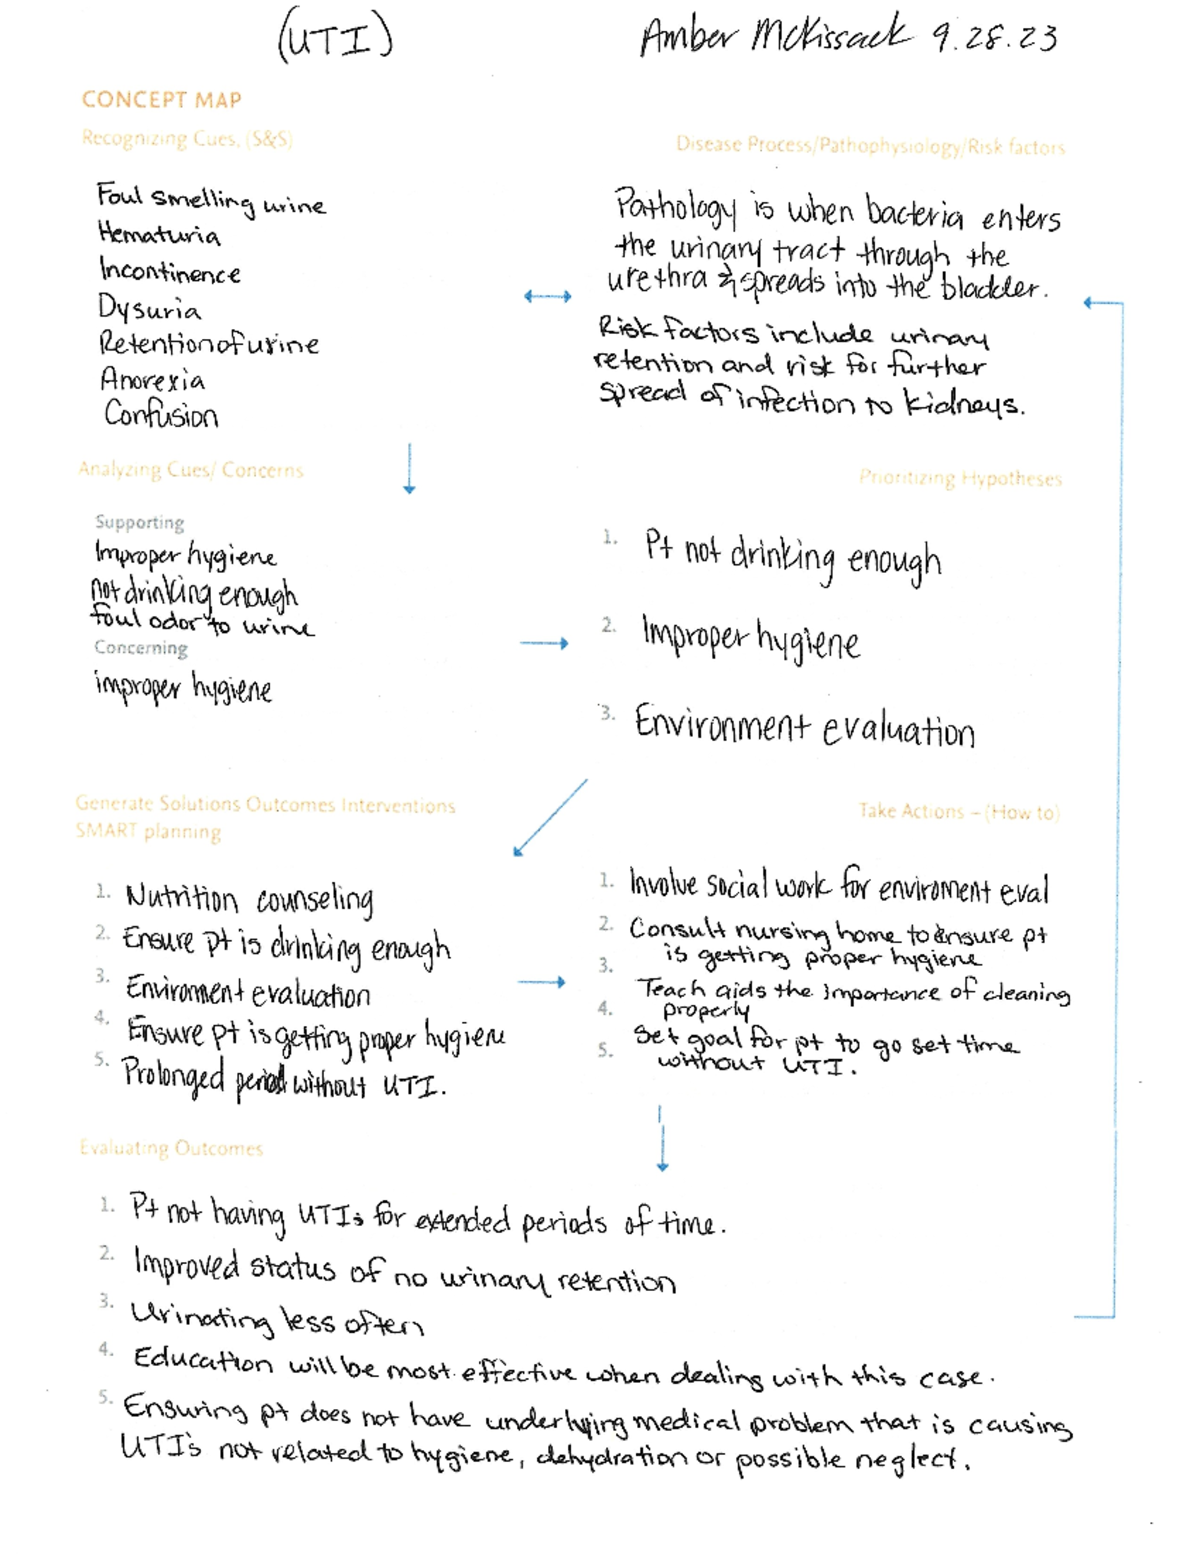 (UTI)
Amber McKissack 9.28.23
CONCEPT MAP
Recognizing Cues, (S&S)
Foul smelling urine
Hematuria
Incontinence
Dysuria
Retention of urine
Anorexia
Confusion
Disease Process/Pathophysiology/Risk factors
Pathology is when bacteria enters
the urinary tract through the
urethra & spreads into the bladder.
Risk factors include urinary
retention and risk for further
spread of infection to kidneys.
Analyzing Cues/ Concerns
Supporting
Improper hygiene
not drinking enough
foul odor to urine
Concerning
improper hygiene
Prioritizing Hypotheses
1. Pt not drinking enough
2. Improper hygiene
3. Environment evaluation
Generate Solutions Outcomes Interventions
SMART planning
1. Nutrition counseling
2. Ensure pt is drinking enough
3. Environment evaluation
4. Ensure pt is getting proper hygiene
5. Prolonged period without UTI.
Take Actions – (How to)
1. Involve social work for enviroment eval
2. Consult nursing home to ensure pt
is getting proper hygiene
3.
Teach aids the importance of cleaning
4. properly
Set goal for pt to go set time
5. without UTI.
Evaluating Outcomes
1. Pt not having UTIs for extended periods of time.
2. Improved status of no urinary retention
3. Urinating less often
4. Education will be most effective when dealing with this case.
5. Ensuring pt does not have underlying medical problem that is causing
UTI's not related to hygiene, dehydration or possible neglect.